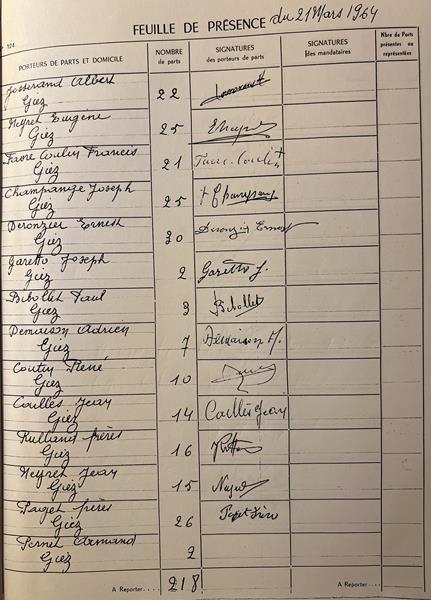 FEUILLE DE PRÉSENCE du 21 Mars 1964
124
PORTEURS DE PARTS ET DOMICILE
NOMBRE de parts
SIGNATURES des porteurs de parts
SIGNATURES des mandataires
Nbre de Parts présentes ou représentées
Josserand Albert
Giez 22
Neyret Eugène
Giez 25
Favre Coutin Francis
Giez 21
Champange Joseph
Giez 25
Deronzier Ernest Deronzier Ernest
Giez 30
Garetto Joseph
Giez 2 Garetto J.
Bibollet Paul
Giez 3 Bibollet
Demaison Adrien
Giez 7 Demaison A.
Coutin René
Giez 10
Coullès Jean
Giez 14 Coullès Jean
frères
Giez 16
Neyret Jean
Giez 15
Paget frères
Giez 26 Paget Frères
Pernet Armand
Giez 2
A Reporter.... 218 A Reporter....